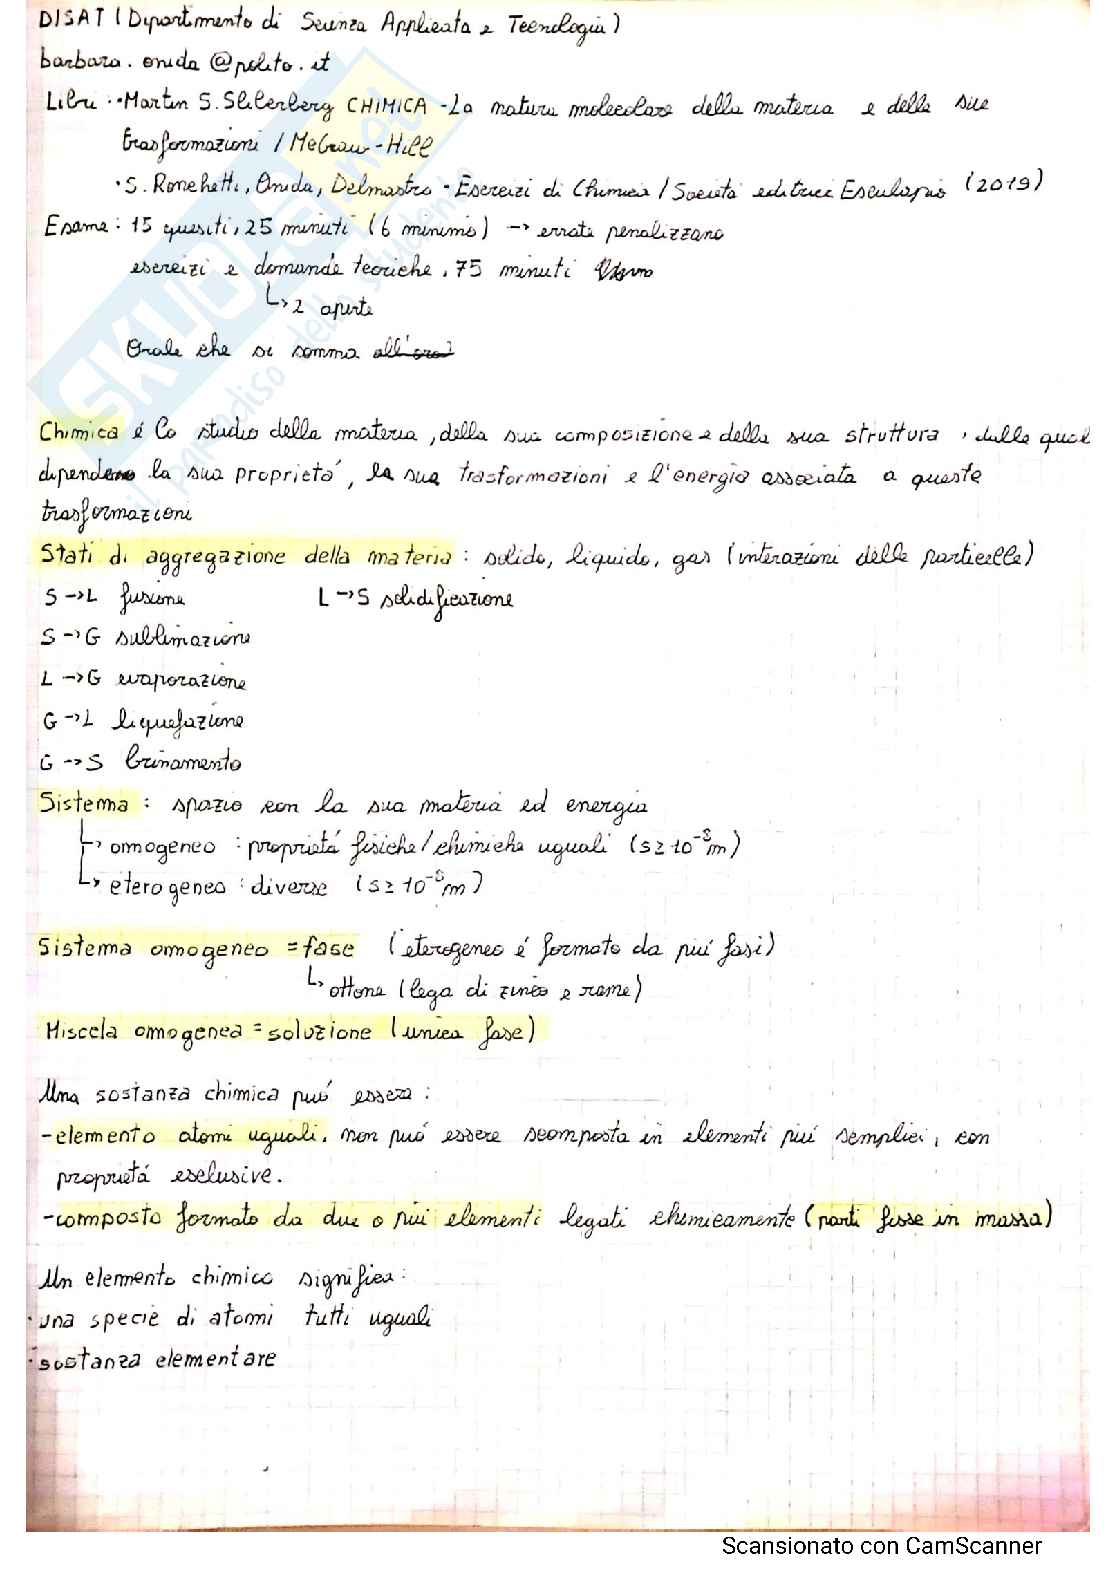 DISAT (Dipartimento di Scienza Applicata e Tecnologia)
barbara.onida@polito.it
Libri: •Martin S. Silberberg CHIMICA - La natura molecolare della materia e delle sue
trasformazioni / McGraw-Hill
•S. Ronchetti, Onida, Delmastro - Esercizi di Chimica / Società editrice Esculapio (2019)
Esame: 15 quesiti, 25 minuti (6 minimo) → errate penalizzano
esercizi e domande teoriche, 75 minuti
↳ 2 aperte
Orale che si somma all'
Chimica é lo studio della materia, della sua composizione e della sua struttura, dalle quali
dipendono la sua proprietá, la sua trasformazioni e l'energia associata a queste
trasformazioni
Stati di aggregazione della materia: solido, liquido, gas (interazioni delle particelle)
S → L fusione L → S solidificazione
S → G sublimazione
L → G evaporazione
G → L liquefazione
G → S brinamento
Sistema: spazio con la sua materia ed energia
↳ omogeneo: proprietá fisiche/chimiche uguali (s ≥ 10⁻⁸m)
↳ eterogeneo: diverse (s ≥ 10⁻⁸m)
Sistema omogeneo = fase (eterogeneo é formato da piú fasi)
↳ ottone (lega di zinco e rame)
Miscela omogenea = soluzione (unica fase)
Una sostanza chimica puó essere:
-elemento atomi uguali, non puó essere scomposta in elementi piú semplici, con
proprietá esclusive.
-composto formato da due o piú elementi legati chimicamente (parti fisse in massa)
Un elemento chimico significa:
•una specie di atomi tutti uguali
•sostanza elementare
SKUOLA.net
il paradiso dello studente
Scansionato con CamScanner